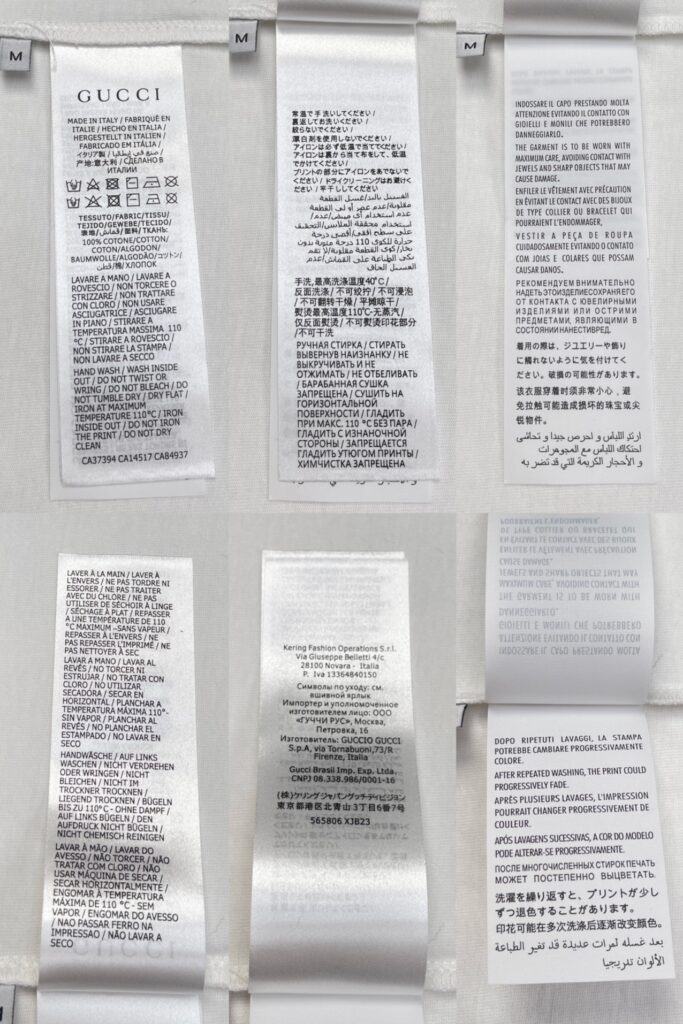 M
GUCCI
MADE IN ITALY / FABRIQUÉ EN
ITALIE / HECHO EN ITALIA /
HERGESTELLT IN ITALIEN /
FABRICADO EM ITÁLIA /
イタリア製 / صنع في إيطاليا /
产地:意大利 / СДЕЛАНО В
ИТАЛИИ
TESSUTO/FABRIC/TISSU/
TEJIDO/GEWEBE/TECIDO/
表地/قماش/面料/ТКАНЬ:
100% COTONE/COTTON/
COTON/ALGODON/
BAUMWOLLE/ALGODÃO/コットン/
قطن/棉/ХЛОПОК
LAVARE A MANO / LAVARE A
ROVESCIO / NON TORCERE O
STRIZZARE / NON TRATTARE
CON CLORO / NON USARE
ASCIUGATRICE / ASCIUGARE
IN PIANO / STIRARE A
TEMPERATURA MASSIMA 110
°C / STIRARE A ROVESCIO /
NON STIRARE LA STAMPA /
NON LAVARE A SECCO
HAND WASH / WASH INSIDE
OUT / DO NOT TWIST OR
WRING / DO NOT BLEACH / DO
NOT TUMBLE DRY / DRY FLAT /
IRON AT MAXIMUM
TEMPERATURE 110°C / IRON
INSIDE OUT / DO NOT IRON
THE PRINT / DO NOT DRY
CLEAN
CA37394 CA14517 CA84937
M
常温で手洗いしてください/
裏返してお洗いください/
絞らないでください/
漂白剤を使用しないでください/
アイロンは必ず低温で当ててください/
アイロンは裏から当て布をして、低温
でかけてください/
プリントの部分にアイロンをあてないで
ください / ドライクリーニングはお避けく
ださい / 平干ししてください
الغسيل باليد/الغسيل بالقطعة
مقلوبة/عدم عصر أو لي القطعة
/عدم استخدام أي مبيض/عدم
استخدام مجففة الملابس/التجفيف
على سطح أفقي/أقصى درجة
حرارة للكوى 110 درجة مئوية بدون
بخار/كوى القطعة مقلوبة/لا تقم
بكي الطباعة على القماش/عدم
الغسيل الجاف
手洗,最高洗涤温度40°C/
反面洗涤 / 不可绞拧 / 不可浸泡
/ 不可翻转干燥 / 平摊晾干
/ 熨烫最高温度110°C-无蒸汽/
仅反面熨烫/ 不可熨烫印花部分
/不可干洗
РУЧНАЯ СТИРКА / СТИРАТЬ
ВЫВЕРНУВ НАИЗНАНКУ / НЕ
ВЫКРУЧИВАТЬ И НЕ
ОТЖИМАТЬ / НЕ ОТБЕЛИВАТЬ
/ БАРАБАННАЯ СУШКА
ЗАПРЕЩЕНА / СУШИТЬ НА
ГОРИЗОНТАЛЬНОЙ
ПОВЕРХНОСТИ / ГЛАДИТЬ
ПРИ МАКС. 110 °C БЕЗ ПАРА /
ГЛАДИТЬ С ИЗНАНОЧНОЙ
СТОРОНЫ / ЗАПРЕЩАЕТСЯ
ГЛАДИТЬ УТЮГОМ ПРИНТЫ /
ХИМЧИСТКА ЗАПРЕЩЕНА
M
INDOSSARE IL CAPO PRESTANDO MOLTA
ATTENZIONE EVITANDO IL CONTATTO CON
GIOIELLI E MONILI CHE POTREBBERO
DANNEGGIARLO.
THE GARMENT IS TO BE WORN WITH
MAXIMUM CARE, AVOIDING CONTACT WITH
JEWELS AND SHARP OBJECTS THAT MAY
CAUSE DAMAGE.
ENFILER LE VÊTEMENT AVEC PRÉCAUTION
EN ÉVITANT LE CONTACT AVEC DES BIJOUX
DE TYPE COLLIER OU BRACELET QUI
POURRAIENT L'ENDOMMAGER.
VESTIR A PEÇA DE ROUPA
CUIDADOSAMENTE EVITANDO O CONTATO
COM JOIAS E COLARES QUE POSSAM
CAUSAR DANOS.
РЕКОМЕНДУЕМ ВНИМАТЕЛЬНО
НАДЕТЬ ЭТО ИЗДЕЛИЕ СОХРАНЯЯ ЕГО
ОТ КОНТАКТА С ЮВЕЛИРНЫМИ
ИЗДЕЛИЯМИ ИЛИ ОСТРИМИ
ПРЕДМЕТАМИ, ЯВЛЯЮЩИМИ В
СОСТОЯНИИ НАНЕСТИ ВРЕД.
着用の際は、ジュエリーや飾り
に触れないように気を付けてく
ださい。破損の可能性があります。
该衣服穿着时须非常小心，避
免拉触可能造成损坏的珠宝或尖
锐物件。
ارتدِ اللباس و احرص جيدا و تحاشى
احتكاك اللباس مع المجوهرات
و الأحجار الكريمة التي قد تضر به
LAVER À LA MAIN / LAVER À
L'ENVERS / NE PAS TORDRE NI
ESSORER / NE PAS TRAITER
AVEC DU CHLORE / NE PAS
UTILISER DE SÉCHOIR À LINGE
/ SÉCHAGE À PLAT / REPASSER
A UNE TEMPÉRATURE DE 110
°C MAXIMUM –SANS VAPEUR /
REPASSER À L'ENVERS / NE
PAS REPASSER L'IMPRIMÉ / NE
PAS NETTOYER À SEC
LAVAR A MANO / LAVAR AL
REVÉS / NO TORCER NI
ESTRUJAR / NO TRATAR CON
CLORO / NO UTILIZAR
SECADORA / SECAR EN
HORIZONTAL / PLANCHAR A
TEMPERATURA MÁXIMA 110°-
SIN VAPOR / PLANCHAR AL
REVÉS / NO PLANCHAR EL
ESTAMPADO / NO LAVAR EN
SECO
HANDWÄSCHE / AUF LINKS
WASCHEN / NICHT VERDREHEN
ODER WRINGEN / NICHT
BLEICHEN / NICHT IM
TROCKNER TROCKNEN /
LIEGEND TROCKNEN / BÜGELN
BIS ZU 110°C - OHNE DAMPF /
AUF LINKS BÜGELN / DEN
AUFDRUCK NICHT BÜGELN /
NICHT CHEMISCH REINIGEN
LAVAR À MÃO / LAVAR DO
AVESSO / NÃO TORCER / NÃO
TRATAR COM CLORO / NÃO
USAR MÁQUINA DE SECAR /
SECAR HORIZONTALMENTE /
ENGOMAR À TEMPERATURA
MÁXIMA DE 110 °C - SEM
VAPOR / ENGOMAR DO AVESSO
/ NAO PASSAR FERRO NA
IMPRESSÃO / NÃO LAVAR A
SECO
Kering Fashion Operations S.r.l.
Via Giuseppe Belletti 4/c
28100 Novara - Italia
P. Iva 13364840150
Символы по уходу: см.
вшивной ярлык
Импортер и уполномоченное
изготовителем лицо: ООО
«ГУЧЧИ РУС», Москва,
Петровка, 16
Изготовитель: GUCCIO GUCCI
S.p.A, via Tornabuoni,73/R
Firenze, Italia
Gucci Brasil Imp. Exp. Ltda.
CNPJ 08.338.986/0001-16
(株)ケリングジャパングッチディビジョン
東京都港区北青山3丁目6番7号
565806 XJB23
DOPO RIPETUTI LAVAGGI, LA STAMPA
POTREBBE CAMBIARE PROGRESSIVAMENTE
COLORE.
AFTER REPEATED WASHING, THE PRINT COULD
PROGRESSIVELY FADE.
APRÈS PLUSIEURS LAVAGES, L'IMPRESSION
POURRAIT CHANGER PROGRESSIVEMENT DE
COULEUR.
APÓS LAVAGENS SUCESSIVAS, A COR DO MODELO
PODE ALTERAR-SE PROGRESSIVAMENTE.
ПОСЛЕ МНОГОЧИСЛЕННЫХ СТИРОК ПЕЧАТЬ
МОЖЕТ ПОСТЕПЕННО ВЫЦВЕТАТЬ.
洗濯を繰り返すと、プリントが少し
ずつ退色することがあります。
印花可能在多次洗涤后逐渐改变颜色。
بعد غسله لمرات عديدة قد تغير الطباعة
الألوان تدريجيا